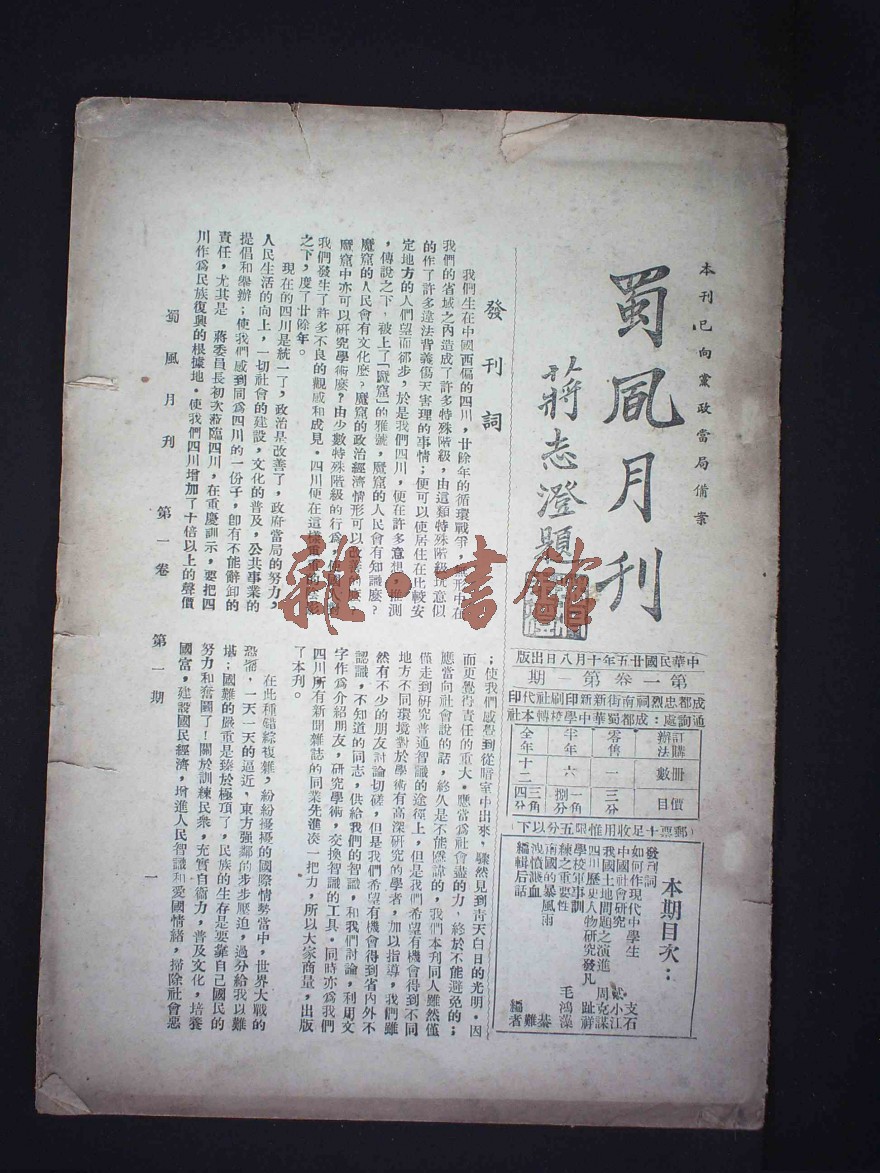 本刊已向黨政當局備案
蜀風月刊
蔣志澄題
中華民國廿五年十月八日出版
第一卷第一期
成都忠烈祠南街新新印刷社代印
通詢處：成都蜀華中學校轉本社
訂購辦法
零售
半年
全年
冊數
一
六
十二
價目
三分
一角捌分
三角四分
（郵票十足收用惟限五分以下）
本期目次：
發刊詞
如何作現代中學生 支石
中國社會研究 小江
我國土地問題之演進 周克謀
四川歷史人物研究發凡 祥
學校軍事訓練之重要性 毛鴻藻
國的暴風雨
洩憤濺血 難
編輯后話 編者
發刊詞
我們生在中國西偏的四川，廿餘年的循環戰爭，形中在
我們的省域之內造成了許多特殊階級，由這類特殊階級抗意似
的作了許多違法背義傷天害理的事情；便可以使居住在比較安
定地方的人們望而郤步，於是我們四川，便在許多意想，推測
，傳說之下，被上了「魔窟」的雅號，魔窟的人民會有知識麽？
魔窟的人民會有文化麽？魔窟的政治經濟情形可以改善的麽？
魔窟中亦可以研究學術麽？由少數特殊階級的行爲，使國人對
我們發生了許多不良的觀感和成見。四川便在這樣重重的
之下，度了廿餘年。
現在的四川是統一了，政治是改善了，政府當局的努力，
人民生活的向上，一切社會的建設，文化的普及，公共事業的
提倡和舉辦；使我們感到同爲四川的一份子，卽有不能辭卸的
責任，尤其是　蔣委員長初次蒞臨四川，在重慶訓示，要把四
川作爲民族復興的根據地。使我們四川增加了十倍以上的聲價
；使我們感覺到從暗室中出來，驟然見到青天白日的光明。因
而更覺得責任的重大。應當爲社會盡的力，終於不能避免的；
應當向社會說的話，終久是不能隱諱的，我們本刊同人雖然僅
僅走到研究普通智識的途徑上，但是我們希望有機會得到不同
地方不同環境對於學術有高深研究的學者，加以指導，我們雖
然有不少的朋友討論切磋，但是我們希望有機會得到省內外不
認識，不知道的同志，供給我們的智識，和我們討論，利用文
字作爲介紹朋友，研究學術，交換智識的工具。同時亦爲我們
四川所有新聞雜誌的同業先進凑一把力，所以大家商量，出版
了本刊。
在此種錯綜複雜，紛紛擾擾的國際情勢當中，世界大戰的
恐怖，一天一天的逼近，東方强鄰的步步壓迫，過分給我以難
堪；國難的嚴重是臻於極頂了，民族的生存是要靠自己國民的
努力和奮鬭了！關於訓練民衆，充實自衞力，普及文化，培養
國富，建設國民經濟，增進人民智識和愛國情緒，掃除社會惡
蜀風月刊 第一卷 第一期 一
雜·書館